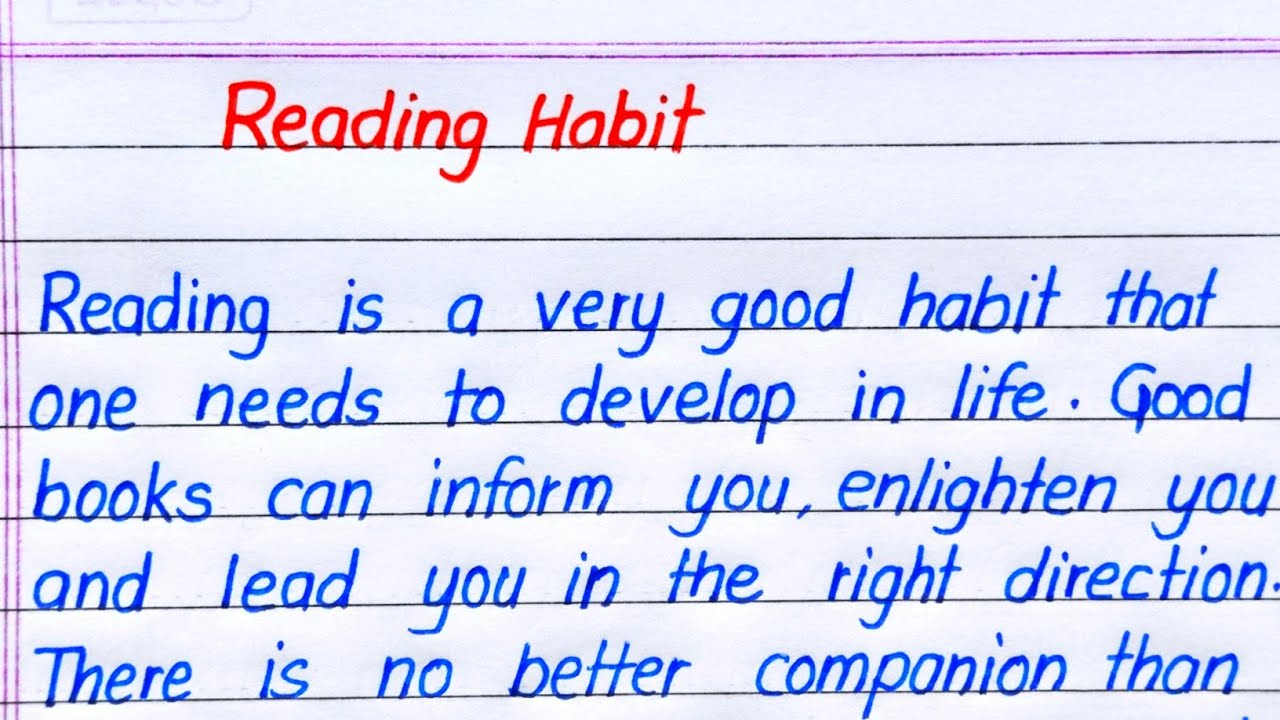 Reading Habit
Reading is a very good habit that
one needs to develop in life. Good
books can inform you, enlighten you
and lead you in the right direction.
There is no better companion than